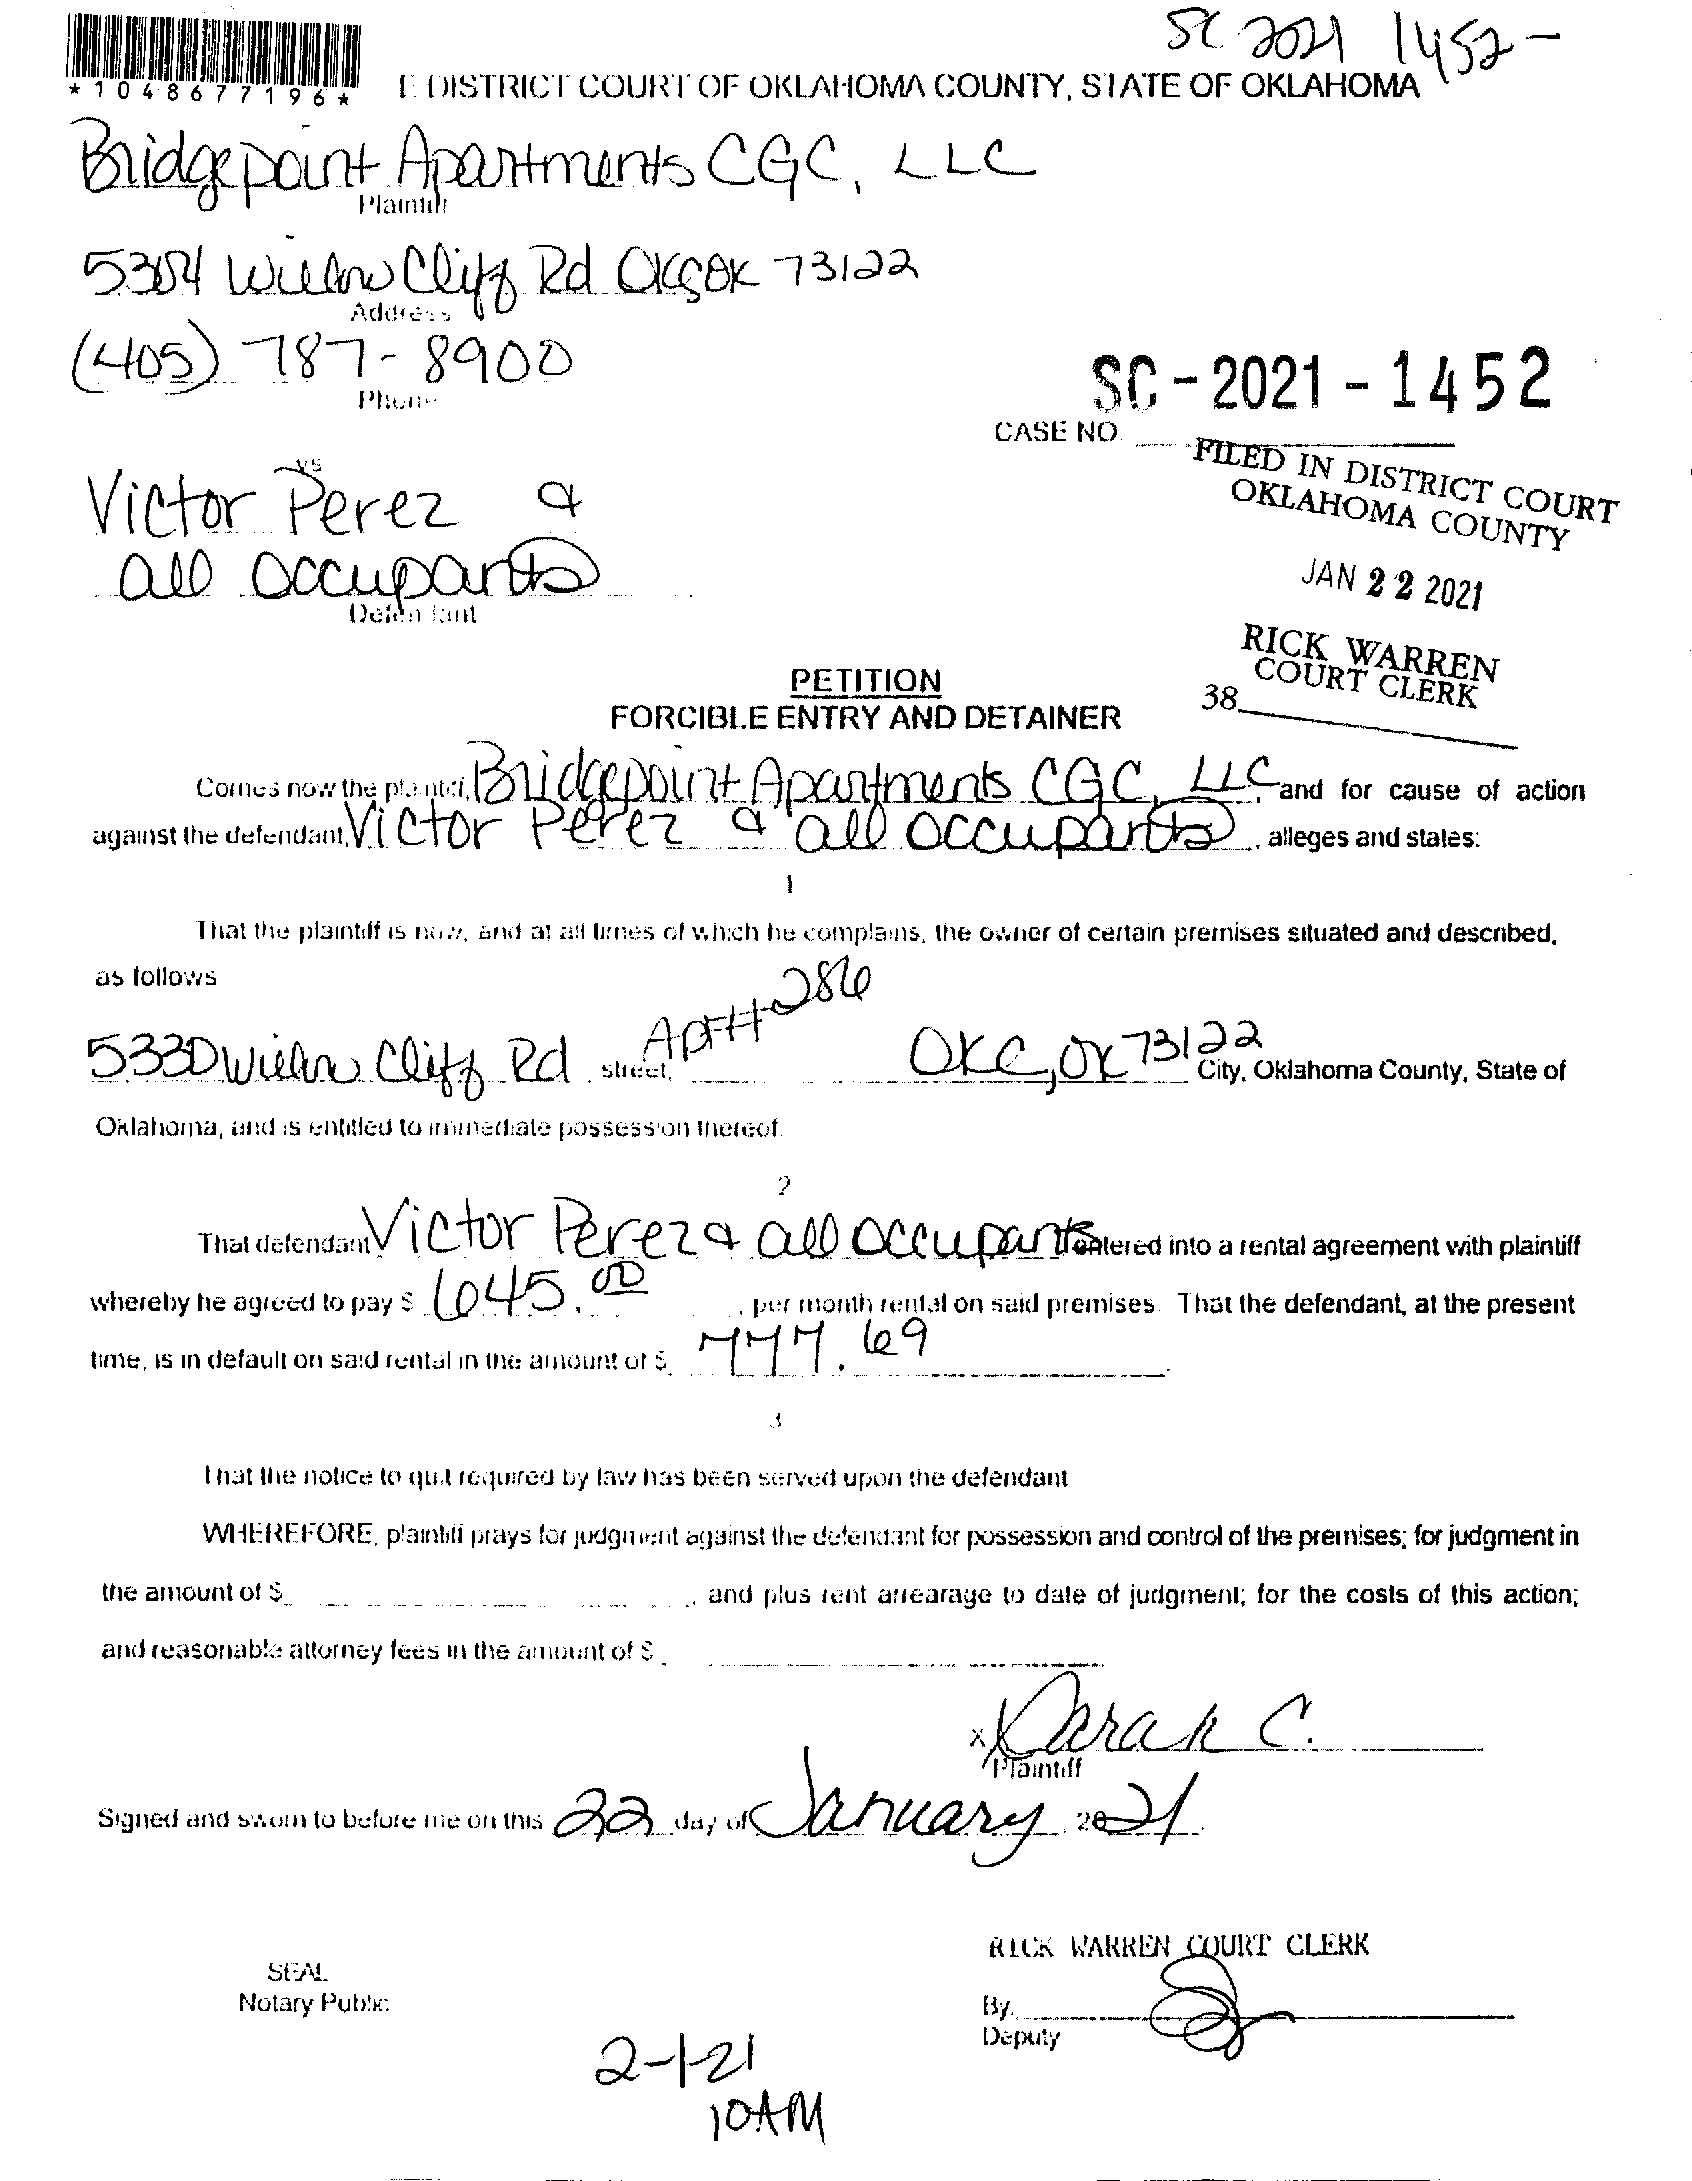 SC 2021 1452-
*1048677196*
E DISTRICT COURT OF OKLAHOMA COUNTY, STATE OF OKLAHOMA
Bridgepoint Apartments CGC, LLC
Plaintiff
5304 Willow Cliff Rd OKC OK 73122
Address
(405) 787-8900
Phone
SC-2021-1452
CASE NO.
vs
FILED IN DISTRICT COURT
OKLAHOMA COUNTY
Victor Perez &
all occupants
Defendant
JAN 22 2021
RICK WARREN
COURT CLERK
38
PETITION
FORCIBLE ENTRY AND DETAINER
Comes now the plaintiff, Bridgepoint Apartments CGC, LLC, and for cause of action
against the defendant, Victor Perez & all occupants, alleges and states:
1
That the plaintiff is now, and at all times of which he complains, the owner of certain premises situated and described,
as follows
5330 Willow Cliff Rd street, Apt # 286 OKC, OK 73122 City, Oklahoma County, State of
Oklahoma, and is entitled to immediate possession thereof.
2
That defendant Victor Perez & all occupants entered into a rental agreement with plaintiff
whereby he agreed to pay $ 645.00, per month rental on said premises. That the defendant, at the present
time, is in default on said rental in the amount of $ 777.69
3
That the notice to quit required by law has been served upon the defendant
WHEREFORE, plaintiff prays for judgment against the defendant for possession and control of the premises; for judgment in
the amount of $ , and plus rent arrearage to date of judgment; for the costs of this action;
and reasonable attorney fees in the amount of $
x Sarah C.
Plaintiff
Signed and sworn to before me on this 22 day of January 2021
RICK WARREN COURT CLERK
SEAL
Notary Public
By
Deputy
2-1-21
10AM